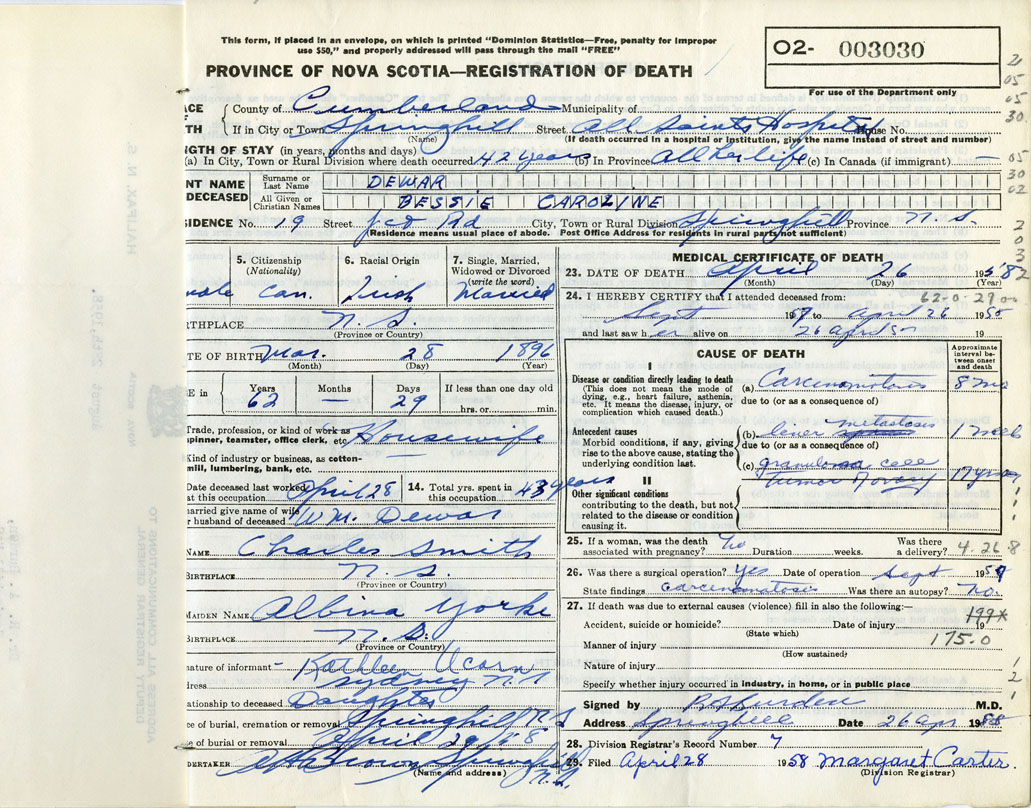 This form, if placed in an envelope, on which is printed "Dominion Statistics—Free, penalty for improper
use $50," and properly addressed will pass through the mail "FREE"
PROVINCE OF NOVA SCOTIA—REGISTRATION OF DEATH
O2- 003030
For use of the Department only
ACE County of Cumberland Municipality of
TH If in City or Town Springhill Street All Saints Hospital House No.
(Name) (If death occurred in a hospital or institution, give the name instead of street and number)
NGTH OF STAY (in years, months and days)
(a) In City, Town or Rural Division where death occurred 42 years (b) In Province All her life (c) In Canada (if immigrant) —
NT NAME Surname or Last Name DEWAR
DECEASED All Given or Christian Names BESSIE CAROLINE
SIDENCE No. 19 Street Jct Rd City, Town or Rural Division Springhill Province N.S.
(Residence means usual place of abode. Post Office Address for residents in rural parts not sufficient)
5. Citizenship (Nationality) Can.
6. Racial Origin Irish
7. Single, Married, Widowed or Divorced (write the word) Married
RTHPLACE N.S.
(Province or Country)
TE OF BIRTH Mar. 28 1896
(Month) (Day) (Year)
E in Years 62 Months — Days 29 If less than one day old hrs. or min.
Trade, profession, or kind of work as
pinner, teamster, office clerk, etc. Housewife
Kind of industry or business, as cotton-
mill, lumbering, bank, etc. —
Date deceased last worked at this occupation April 28
14. Total yrs. spent in this occupation 43 years
arried give name of wife
r husband of deceased Wm. Dewar
NAME Charles Smith
BIRTHPLACE N.S.
(Province or Country)
MAIDEN NAME Albina Yorke
BIRTHPLACE N.S.
(Province or Country)
nature of informant Kathleen Acorn
dress Sydney N.S.
lationship to deceased Daughter
ce of burial, cremation or removal Springhill N.S.
e of burial or removal April 29/58
DERTAKER Brown Springhill N.S.
(Name and address)
MEDICAL CERTIFICATE OF DEATH
23. DATE OF DEATH April 26 1958
(Month) (Day) (Year)
62-0-29
24. I HEREBY CERTIFY that I attended deceased from:
Sept 19 to April 26 1958
and last saw her alive on 26 April 19
CAUSE OF DEATH
Approximate interval between onset and death
I
Disease or condition directly leading to death
(This does not mean the mode of dying, e.g., heart failure, asthenia, etc. It means the disease, injury, or complication which caused death.)
(a) Carcinomatosis 8 mos
due to (or as a consequence of)
Antecedent causes
Morbid conditions, if any, giving rise to the above cause, stating the underlying condition last.
(b) liver metastases
due to (or as a consequence of)
(c) granulosa cell
tumor ovary 17 years
II
Other significant conditions
contributing to the death, but not related to the disease or condition causing it.
25. If a woman, was the death associated with pregnancy? No Duration weeks. Was there a delivery? 4-26-8
26. Was there a surgical operation? Yes Date of operation Sept 195
State findings carcinomatosis Was there an autopsy? No.
27. If death was due to external causes (violence) fill in also the following:—
199x
Accident, suicide or homicide? Date of injury 19
(State which)
175.0
Manner of injury
(How sustained)
Nature of injury
Specify whether injury occurred in industry, in home, or in public place
Signed by Burden M.D.
Address Springhill Date 26 Apr 1958
28. Division Registrar's Record Number 7
29. Filed April 28 1958 Margaret Carter
(Division Registrar)